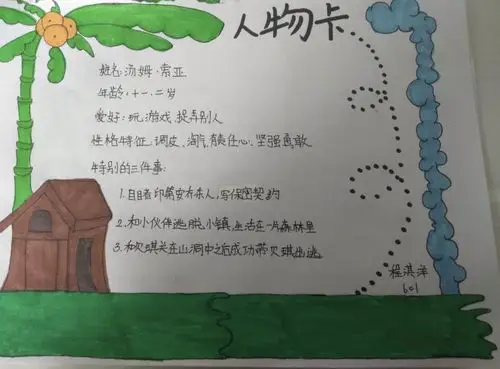 人物卡
姓名:汤姆·索亚
年龄:十一、二岁
爱好:玩游戏、捉弄别人
性格特征:调皮、淘气、有责任心、坚强勇敢
特别的三件事:
1.目睹印第安乔杀人,写保密契约
2.和小伙伴逃脱小镇,生活在一片森林里
3.和贝琪关在山洞中之后成功带贝琪出逃
程淇
601